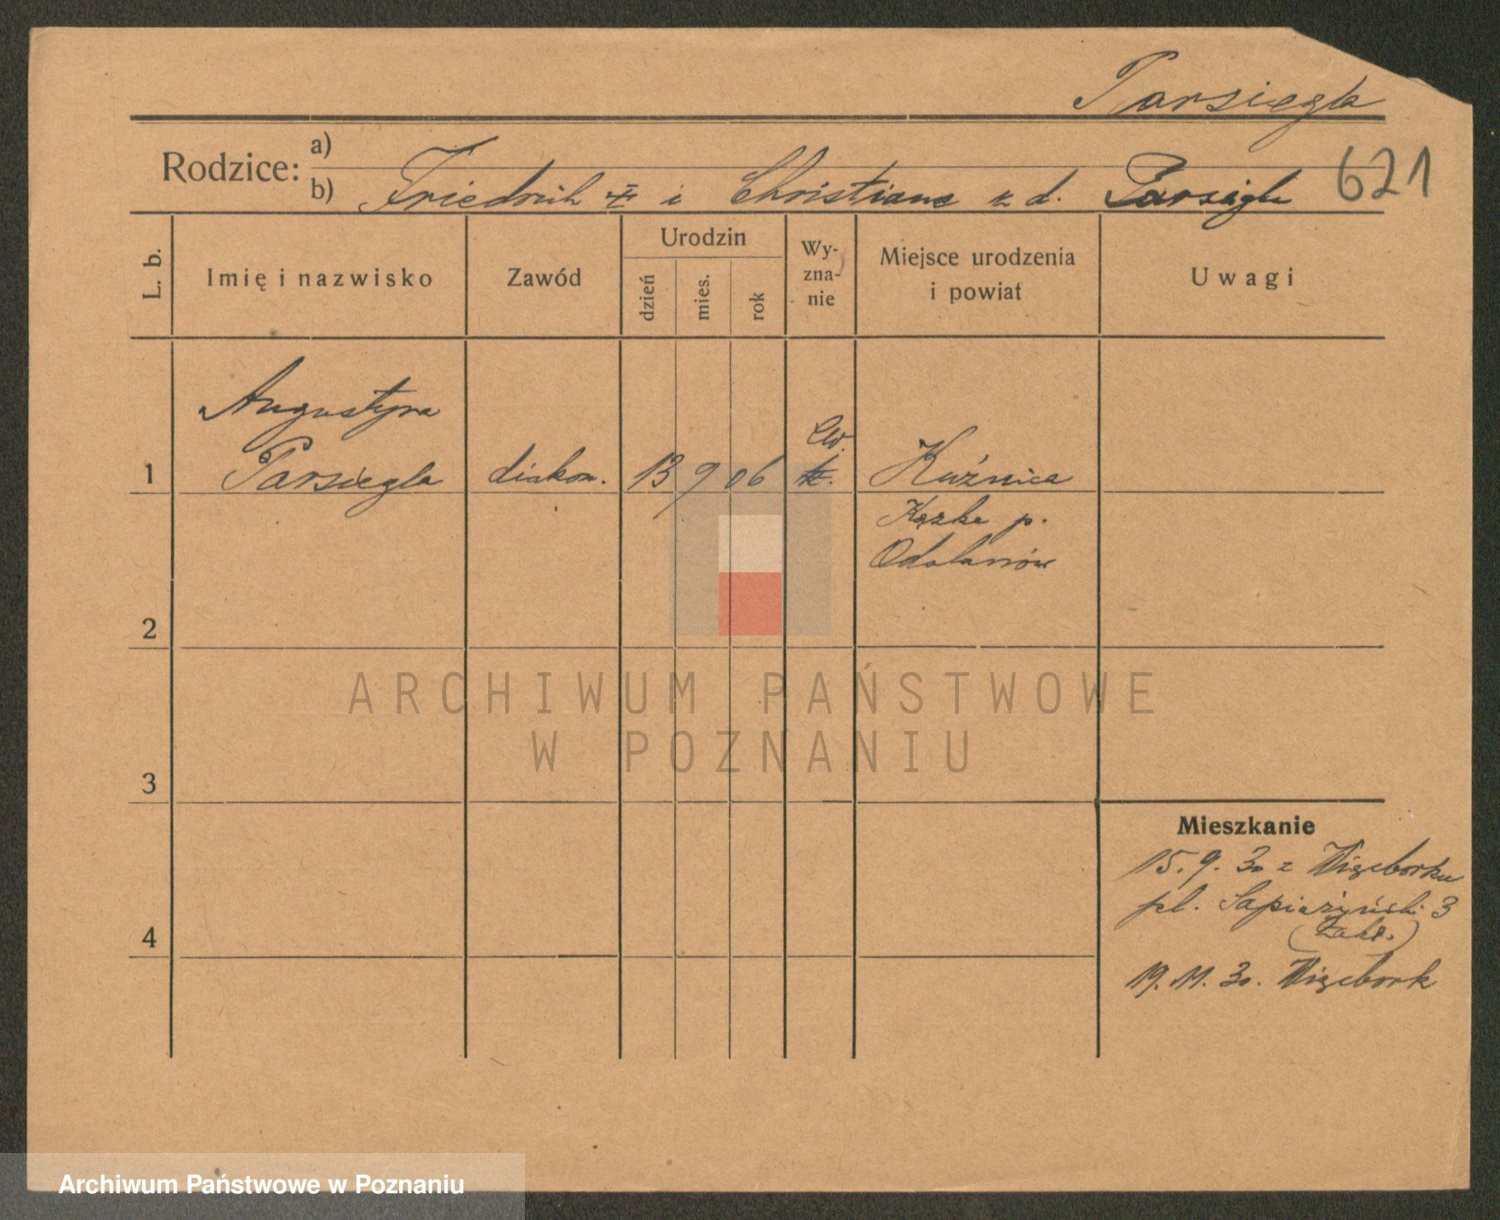 Parsiegla
Rodzice: a)
b) Friedrich i Christiane z d. Parsiegla
621
L. b.
Imię i nazwisko
Zawód
Urodzin
dzień
mies.
rok
Wy-
zna-
nie
Miejsce urodzenia
i powiat
Uwagi
Augustyna
1 Parsiegla diakon. 13 9 06 Ew. Kuźnica
Kącka p.
Odolanów
2
3
4
Mieszkanie
15. 9. 30 z Więcborku
pl. Sapieżyński 3
(Zakł.)
19. 11. 30. Więcbork
ARCHIWUM PAŃSTWOWE
W POZNANIU
Archiwum Państwowe w Poznaniu